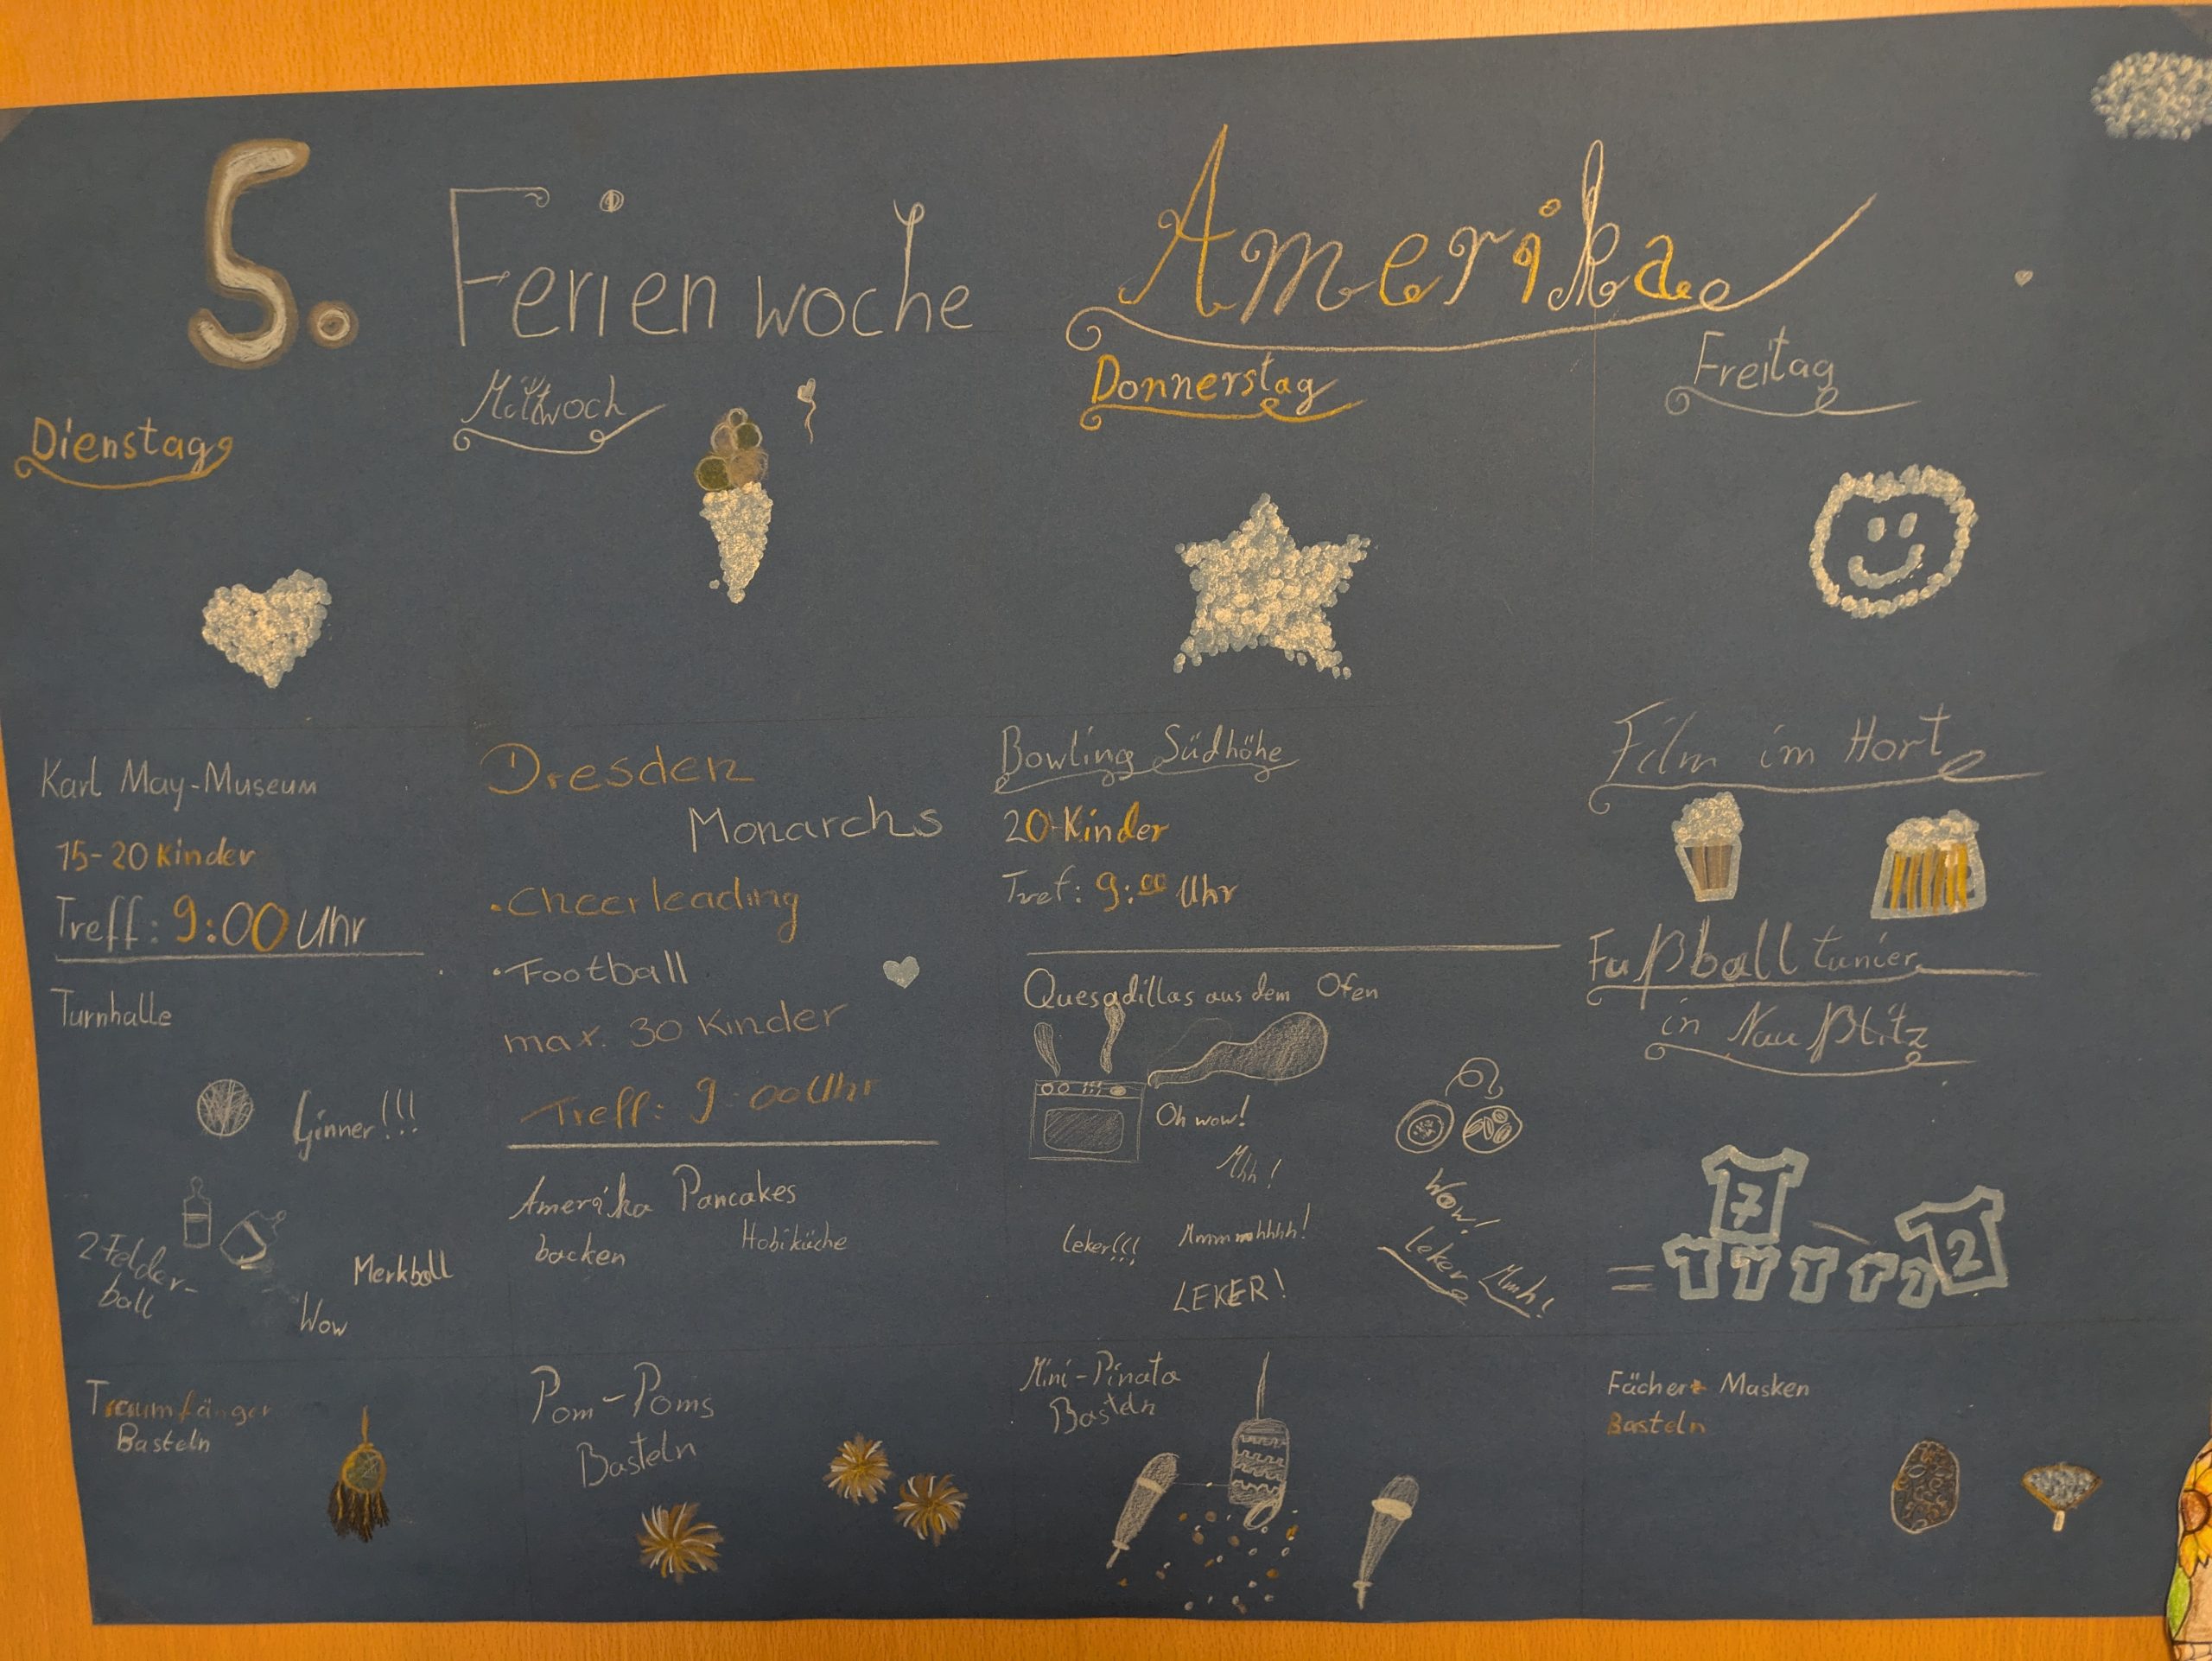 5. Ferienwoche Amerika
Dienstag
Mittwoch
Donnerstag
Freitag
Karl May-Museum
15-20 Kinder
Treff: 9:00 Uhr
Turnhalle
Ginner!!!
2 Felder-
ball
Merkball
Wow
Traumfänger
Basteln
Dresden
Monarchs
• Cheerleading
• Football
max. 30 Kinder
Treff: 9:00 Uhr
Amerika Pancakes
backen
Hobiküche
Pom-Poms
Basteln
Bowling Südhöhe
20 Kinder
Tref: 9:00 Uhr
Quesadillas aus dem Ofen
Oh wow!
Mhh!
Leker!!!
Mmmmhhhh!
LEKER!
Wow!
Leker
Mmh!
Mini-Pinata
Basteln
Film im Hort
Fußballtunier
in Naußlitz
7
2
Fächer + Masken
Basteln